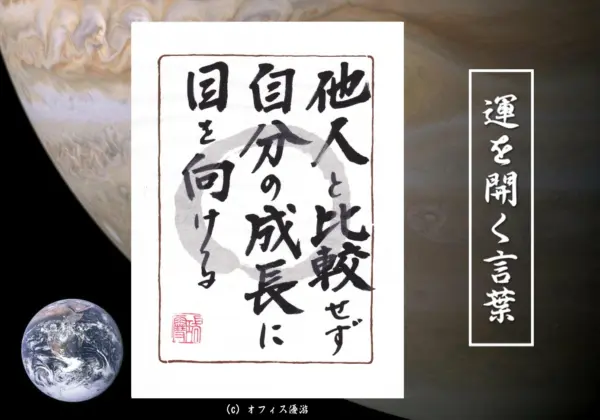 運を開く言葉
他人と比較せず
自分の成長に
目を向ける
(C) オフィス優游